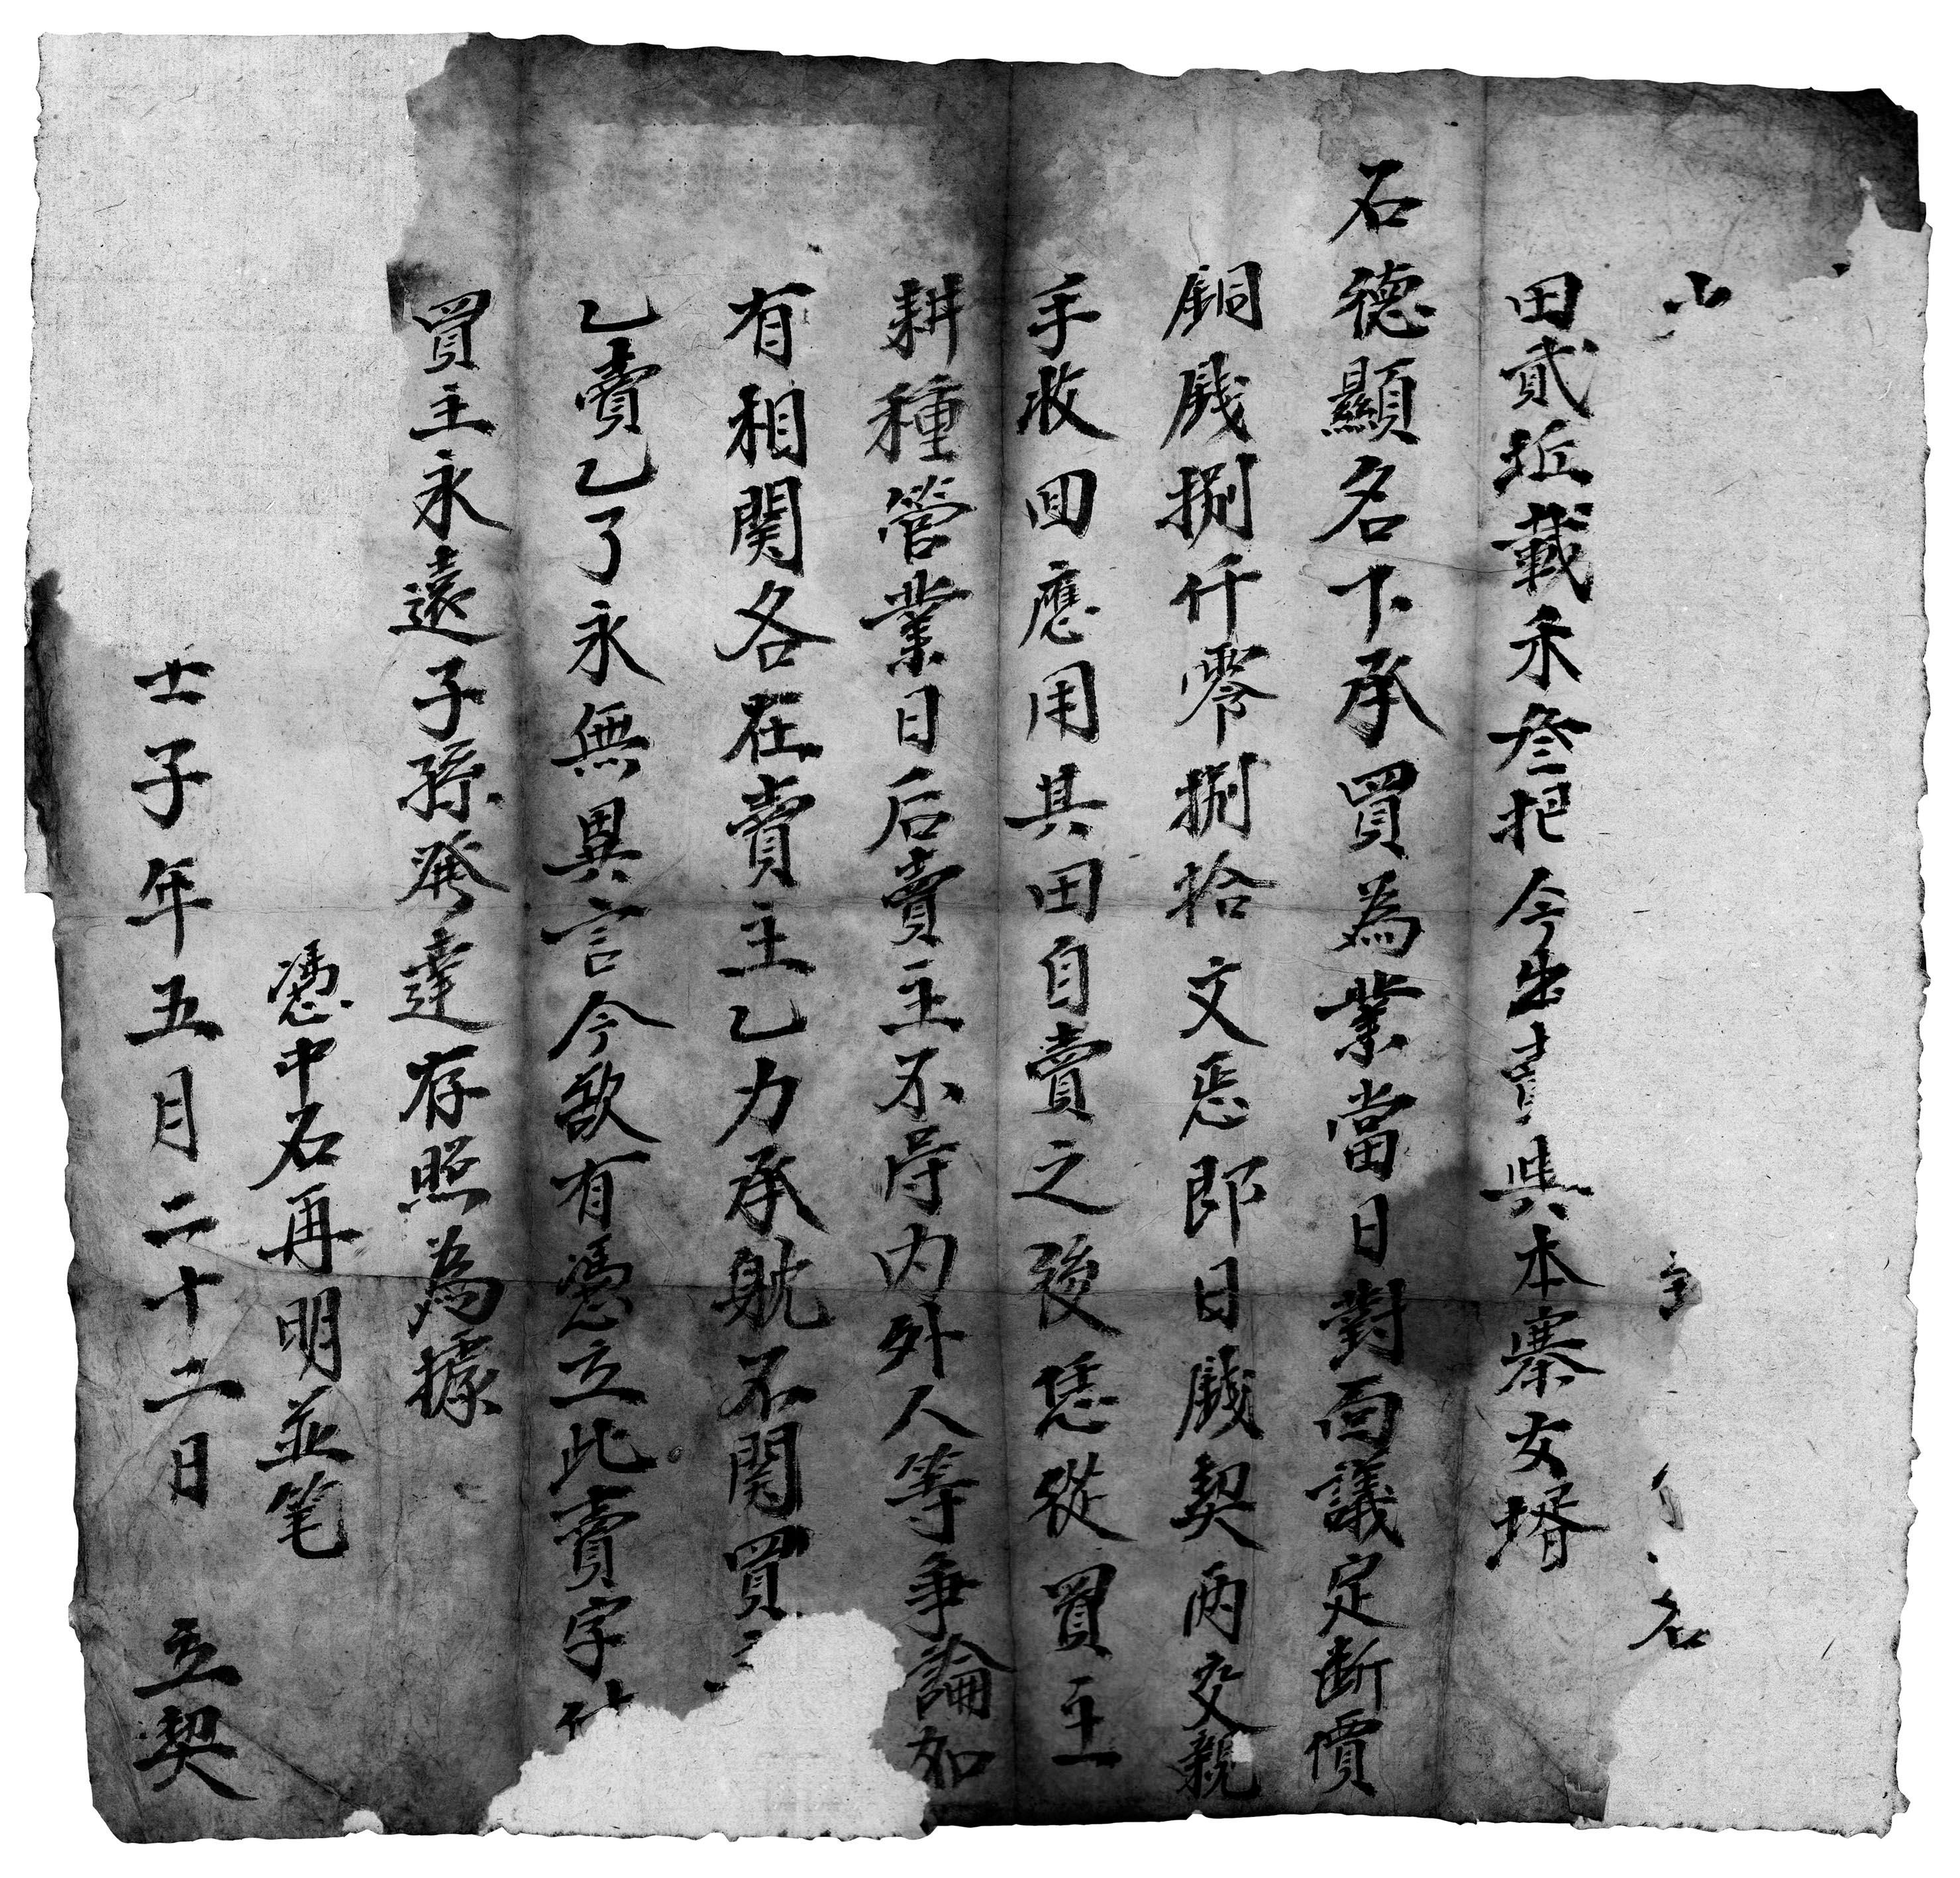 山 名
田貳坵載禾叁把今出賣與本寨女壻
石德顯名下承買為業當日對面議定断價
銅錢捌仟零捌拾文恁即日錢契兩交親
手收回應用其田自賣之後恁從買主
耕種管業日后賣主不得内外人等爭論如
有相関各在賣主乙力承躭不関買
乙賣乙了永無異言今欲有憑立此賣字
買主永遠子孫發達存照為據
憑中石再明並笔
士子年五月二十二日 立契